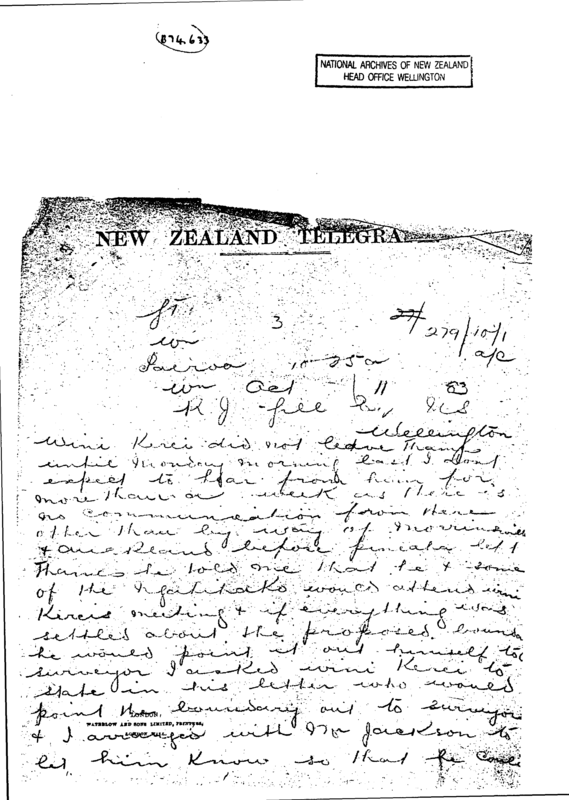 B74.633
NATIONAL ARCHIVES OF NEW ZEALAND
HEAD OFFICE WELLINGTON
NEW ZEALAND TELEGRA
3
279/10/1
a/c
Paeroa 10 25 a
wn Oct 11 83
R J Gill
Wellington
Wini Kerei did not leave Thames
until Monday morning last I dont
expect to hear from him for
more than a week as there is
no communication from here
other than by way of Morrinsville
& Auckland before left
Thames he told me that he & some
of the Ngatihako would attend wini
Kereis meeting & if everything was
settled about the proposed bounda
he would point it out himself to
surveyor I asked wini Kerei to
state in his letter who would
point the boundary out to surveyor
LONDON,
WATERLOW AND SONS LIMITED, PRINTERS,
& I arranged with Mr Jackson to
let him know so that he could